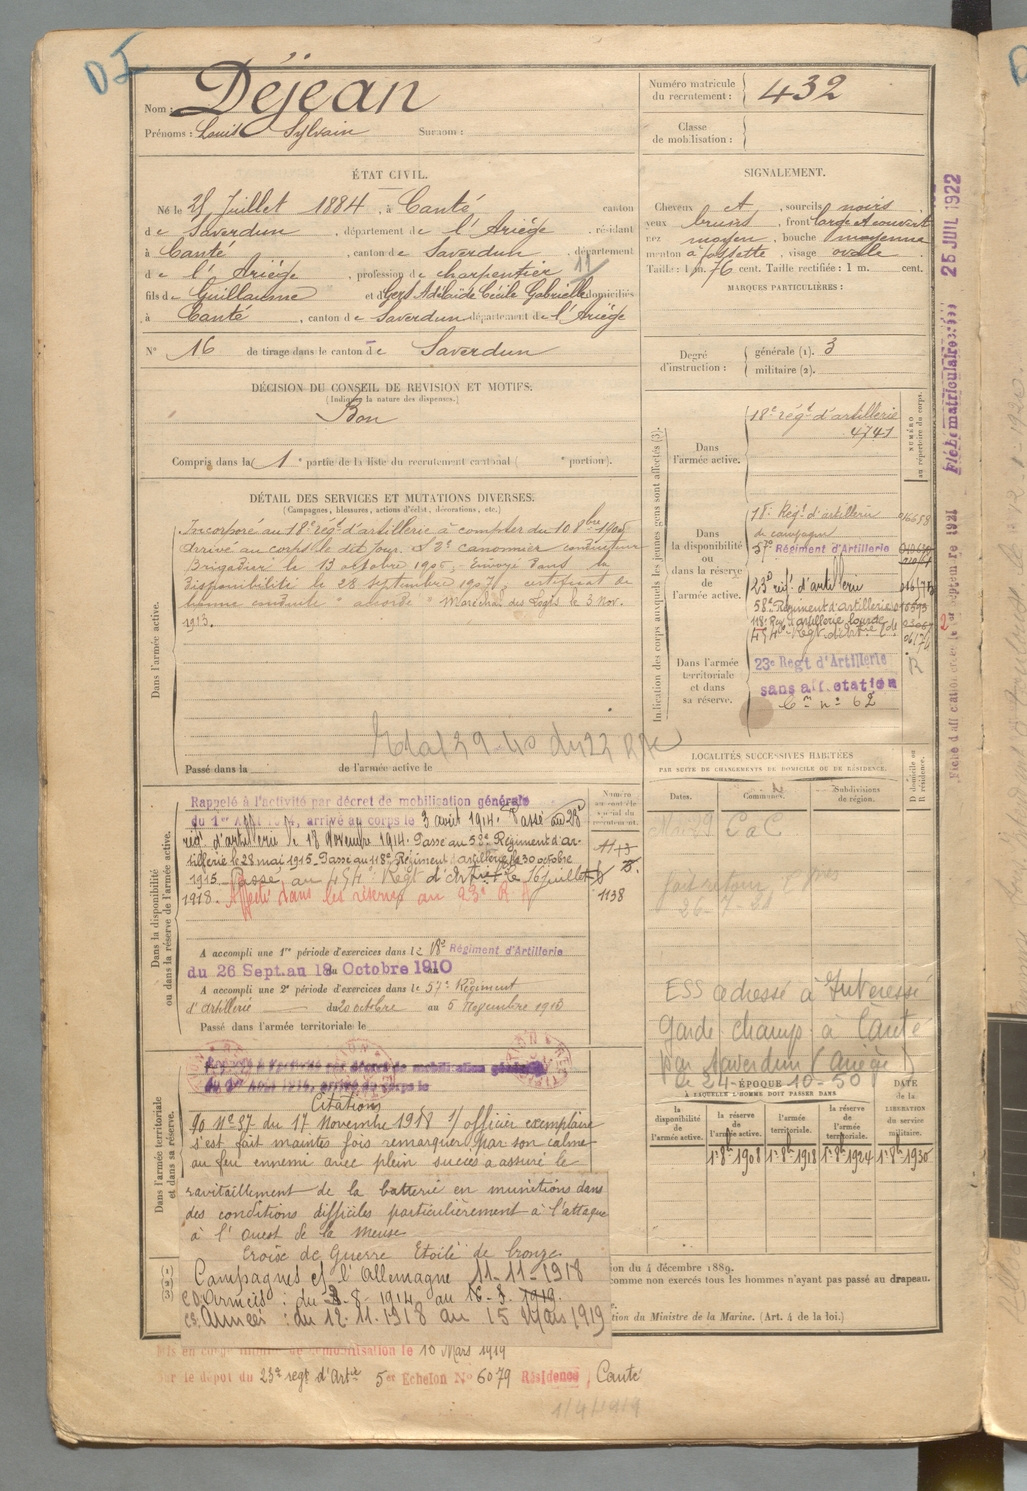 DI
Nom : Déjean
Prénoms : Louis Sylvain Surnom :
Numéro matricule du recrutement : 432
Classe de mobilisation :
ÉTAT CIVIL.
Né le 25 Juillet 1884, à Canté canton
de Saverdun, département de l'Ariège, résidant
à Canté, canton de Saverdun, département
de l'Ariège, profession de charpentier 11
fils de Guillaume et de Gers Adélaïde Cécile Gabrielle domiciliés
à Canté, canton de Saverdun département de l'Ariège
N° 16 de tirage dans le canton de Saverdun
SIGNALEMENT.
Cheveux et, sourcils noirs
yeux bruns, front large et couvert
nez moyen, bouche moyenne
menton à fossette, visage ovale
Taille : 1 m. 76 cent. Taille rectifiée : 1 m. cent.
MARQUES PARTICULIÈRES :
Degré d'instruction : générale (1). 3
militaire (2).
DÉCISION DU CONSEIL DE REVISION ET MOTIFS.
(Indiquer la nature des dispenses.)
Bon
Compris dans la 1e partie de la liste du recrutement cantonal ( e portion).
DÉTAIL DES SERVICES ET MUTATIONS DIVERSES.
(Campagnes, blessures, actions d'éclat, décorations, etc.)
Dans l'armée active.
Incorporé au 18e régt d'artillerie à compter du 10 8bre 1905
arrivé au corps le dit jour, 2e canonnier conducteur
Brigadier le 13 octobre 1906, Envoyé dans la
disponibilité le 28 Septembre 1907, certificat de
bonne conduite "accordé" Maréchal des Logis le 3 Nov.
1913.
Passé dans la de l'armée active le
Indication des corps auxquels les jeunes gens sont affectés (3).
NUMÉRO au répertoire du corps.
Dans l'armée active.
18e régt d'artillerie
4741
Dans la disponibilité ou dans la réserve de l'armée active.
18e Régt d'artillerie
de campagne
57e Régiment d'Artillerie
23e régt d'artillerie
58e Régiment d'artillerie
118e Reg d'artillerie lourde
454e Regt
Dans l'armée territoriale et dans sa réserve.
23e Regt d'Artillerie
sans affectation
Con n° 62
R
25 JUIL 1922
Dans la disponibilité ou dans la réserve de l'armée active.
Rappelé à l'activité par décret de mobilisation générale
du 1er Août 1914, arrivé au corps le 3 août 1914. Passé au 23e
régt d'artillerie le 18 Novembre 1914. Passé au 58e Régiment d'ar-
tillerie le 28 mai 1915. Passé au 118e Régiment d'artillerie le 30 octobre
1915. Passé au 454e Régt d'artie le 16 juillet
1918. Affecté dans les réserves au 23e R A
1138
A accompli une 1re période d'exercices dans le 18e Régiment d'Artillerie
du 26 Sept. au 18 Octobre 1910
A accompli une 2e période d'exercices dans le 57e Régiment
d'Artillerie du 20 octobre au 5 Novembre 1913
Passé dans l'armée territoriale le
LOCALITÉS SUCCESSIVES HABITÉES
PAR SUITE DE CHANGEMENTS DE DOMICILE OU DE RÉSIDENCE.
Dates. Communes. Subdivisions de région. D domicile ou R résidence.
ESS adressé à Intéressé
Garde champ. à Canté
par Saverdun (Ariège)
le 24-10-50
ÉPOQUE
À LAQUELLE L'HOMME DOIT PASSER DANS
la disponibilité de l'armée active. la réserve de l'armée active. l'armée territoriale. la réserve de l'armée territoriale. DATE de la LIBÉRATION du service militaire.
1r 8b 1908 1r 8b 1918 1r 8b 1924 1r 8b 1930
Dans l'armée territoriale et dans sa réserve.
Rappelé à l'activité par décret de mobilisation générale
du 1er Août 1914, arrivé au corps le
Citations
N° 57 du 17 Novembre 1918 officier exemplaire
s'est fait maintes fois remarquer par son calme
au feu ennemi avec plein succès a assuré le
ravitaillement de la batterie en munitions dans
des conditions difficiles particulièrement à l'attaque
à l'Ouest de la Meuse
Croix de Guerre Etoile de bronze
Campagnes cf l'Allemagne 11-11-1918
Cd Armées : du 3-8-1914 au
Cd Armées : du 12.11.1918 au 15 Mars 1919
ion du 4 décembre 1889.
comme non exercés tous les hommes n'ayant pas passé au drapeau.
tion du Ministre de la Marine. (Art. 4 de la loi.)
Mis en congé illimité de démobilisation le 10 Mars 1919
Par le dépôt du 23e regt d'Artie 5e Echelon N° 6079 Résidence, Canté